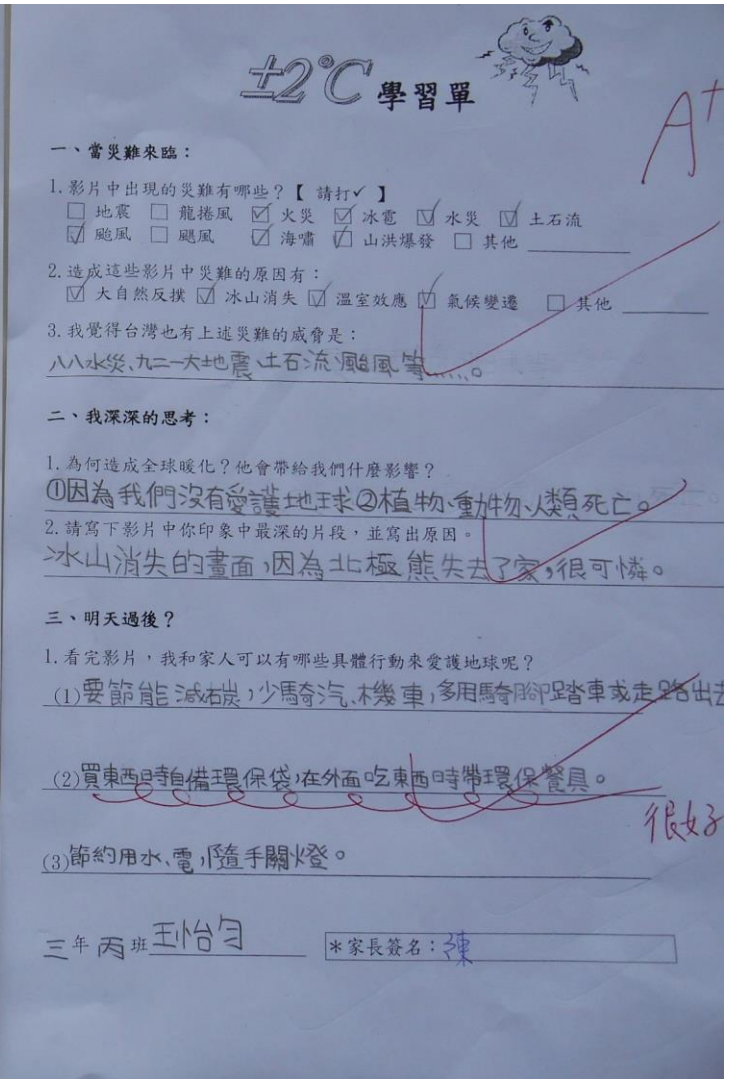 ±2°C 學習單
A+
一、當災難來臨：
1.影片中出現的災難有哪些？【 請打✓ 】
☐ 地震 ☐ 龍捲風 ☑ 火災 ☑ 冰雹 ☑ 水災 ☑ 土石流
☑ 颱風 ☐ 颶風 ☑ 海嘯 ☑ 山洪爆發 ☐ 其他
2.造成這些影片中災難的原因有：
☑ 大自然反撲 ☑ 冰山消失 ☑ 溫室效應 ☑ 氣候變遷 ☐ 其他
3.我覺得台灣也有上述災難的威脅是：
八八水災、九二一大地震、土石流、颱風等……。
二、我深深的思考：
1.為何造成全球暖化？他會帶給我們什麼影響？
①因為我們沒有愛護地球②植物、動物、人類死亡。
2.請寫下影片中你印象中最深的片段，並寫出原因。
冰山消失的畫面，因為北極熊失去了家，很可憐。
三、明天過後？
1.看完影片，我和家人可以有哪些具體行動來愛護地球呢？
(1)要節能減碳，少騎汽、機車，多用騎腳踏車或走路出去
(2)買東西時自備環保袋，在外面吃東西時帶環保餐具。
很好
(3)節約用水、電，隨手關燈。
三年丙班王怡匀
＊家長簽名：陳